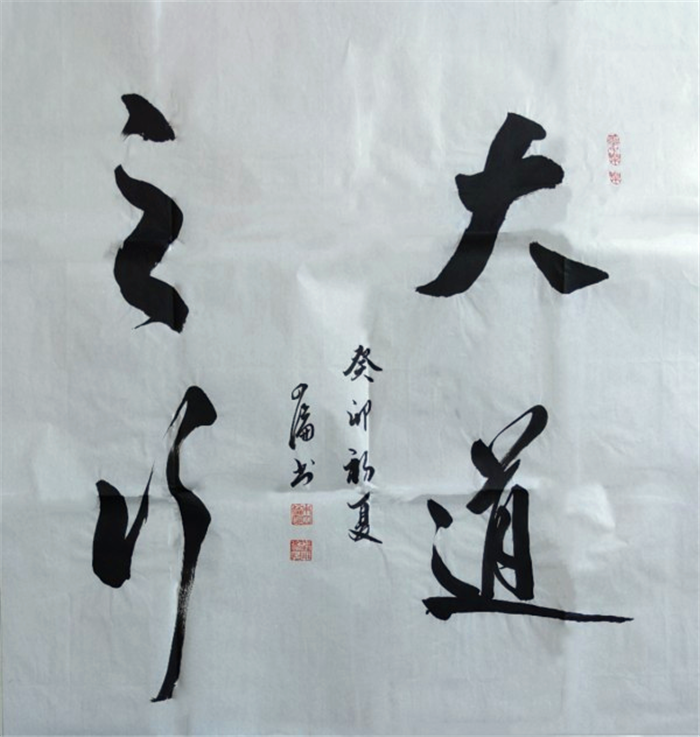 大道
之行
癸卯初夏
书